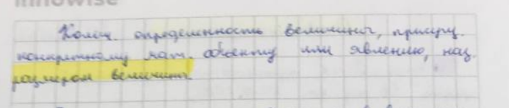 Колич. определенность величины, присущ.
конкретному мат. объекту или явлению, наз.
размером величины